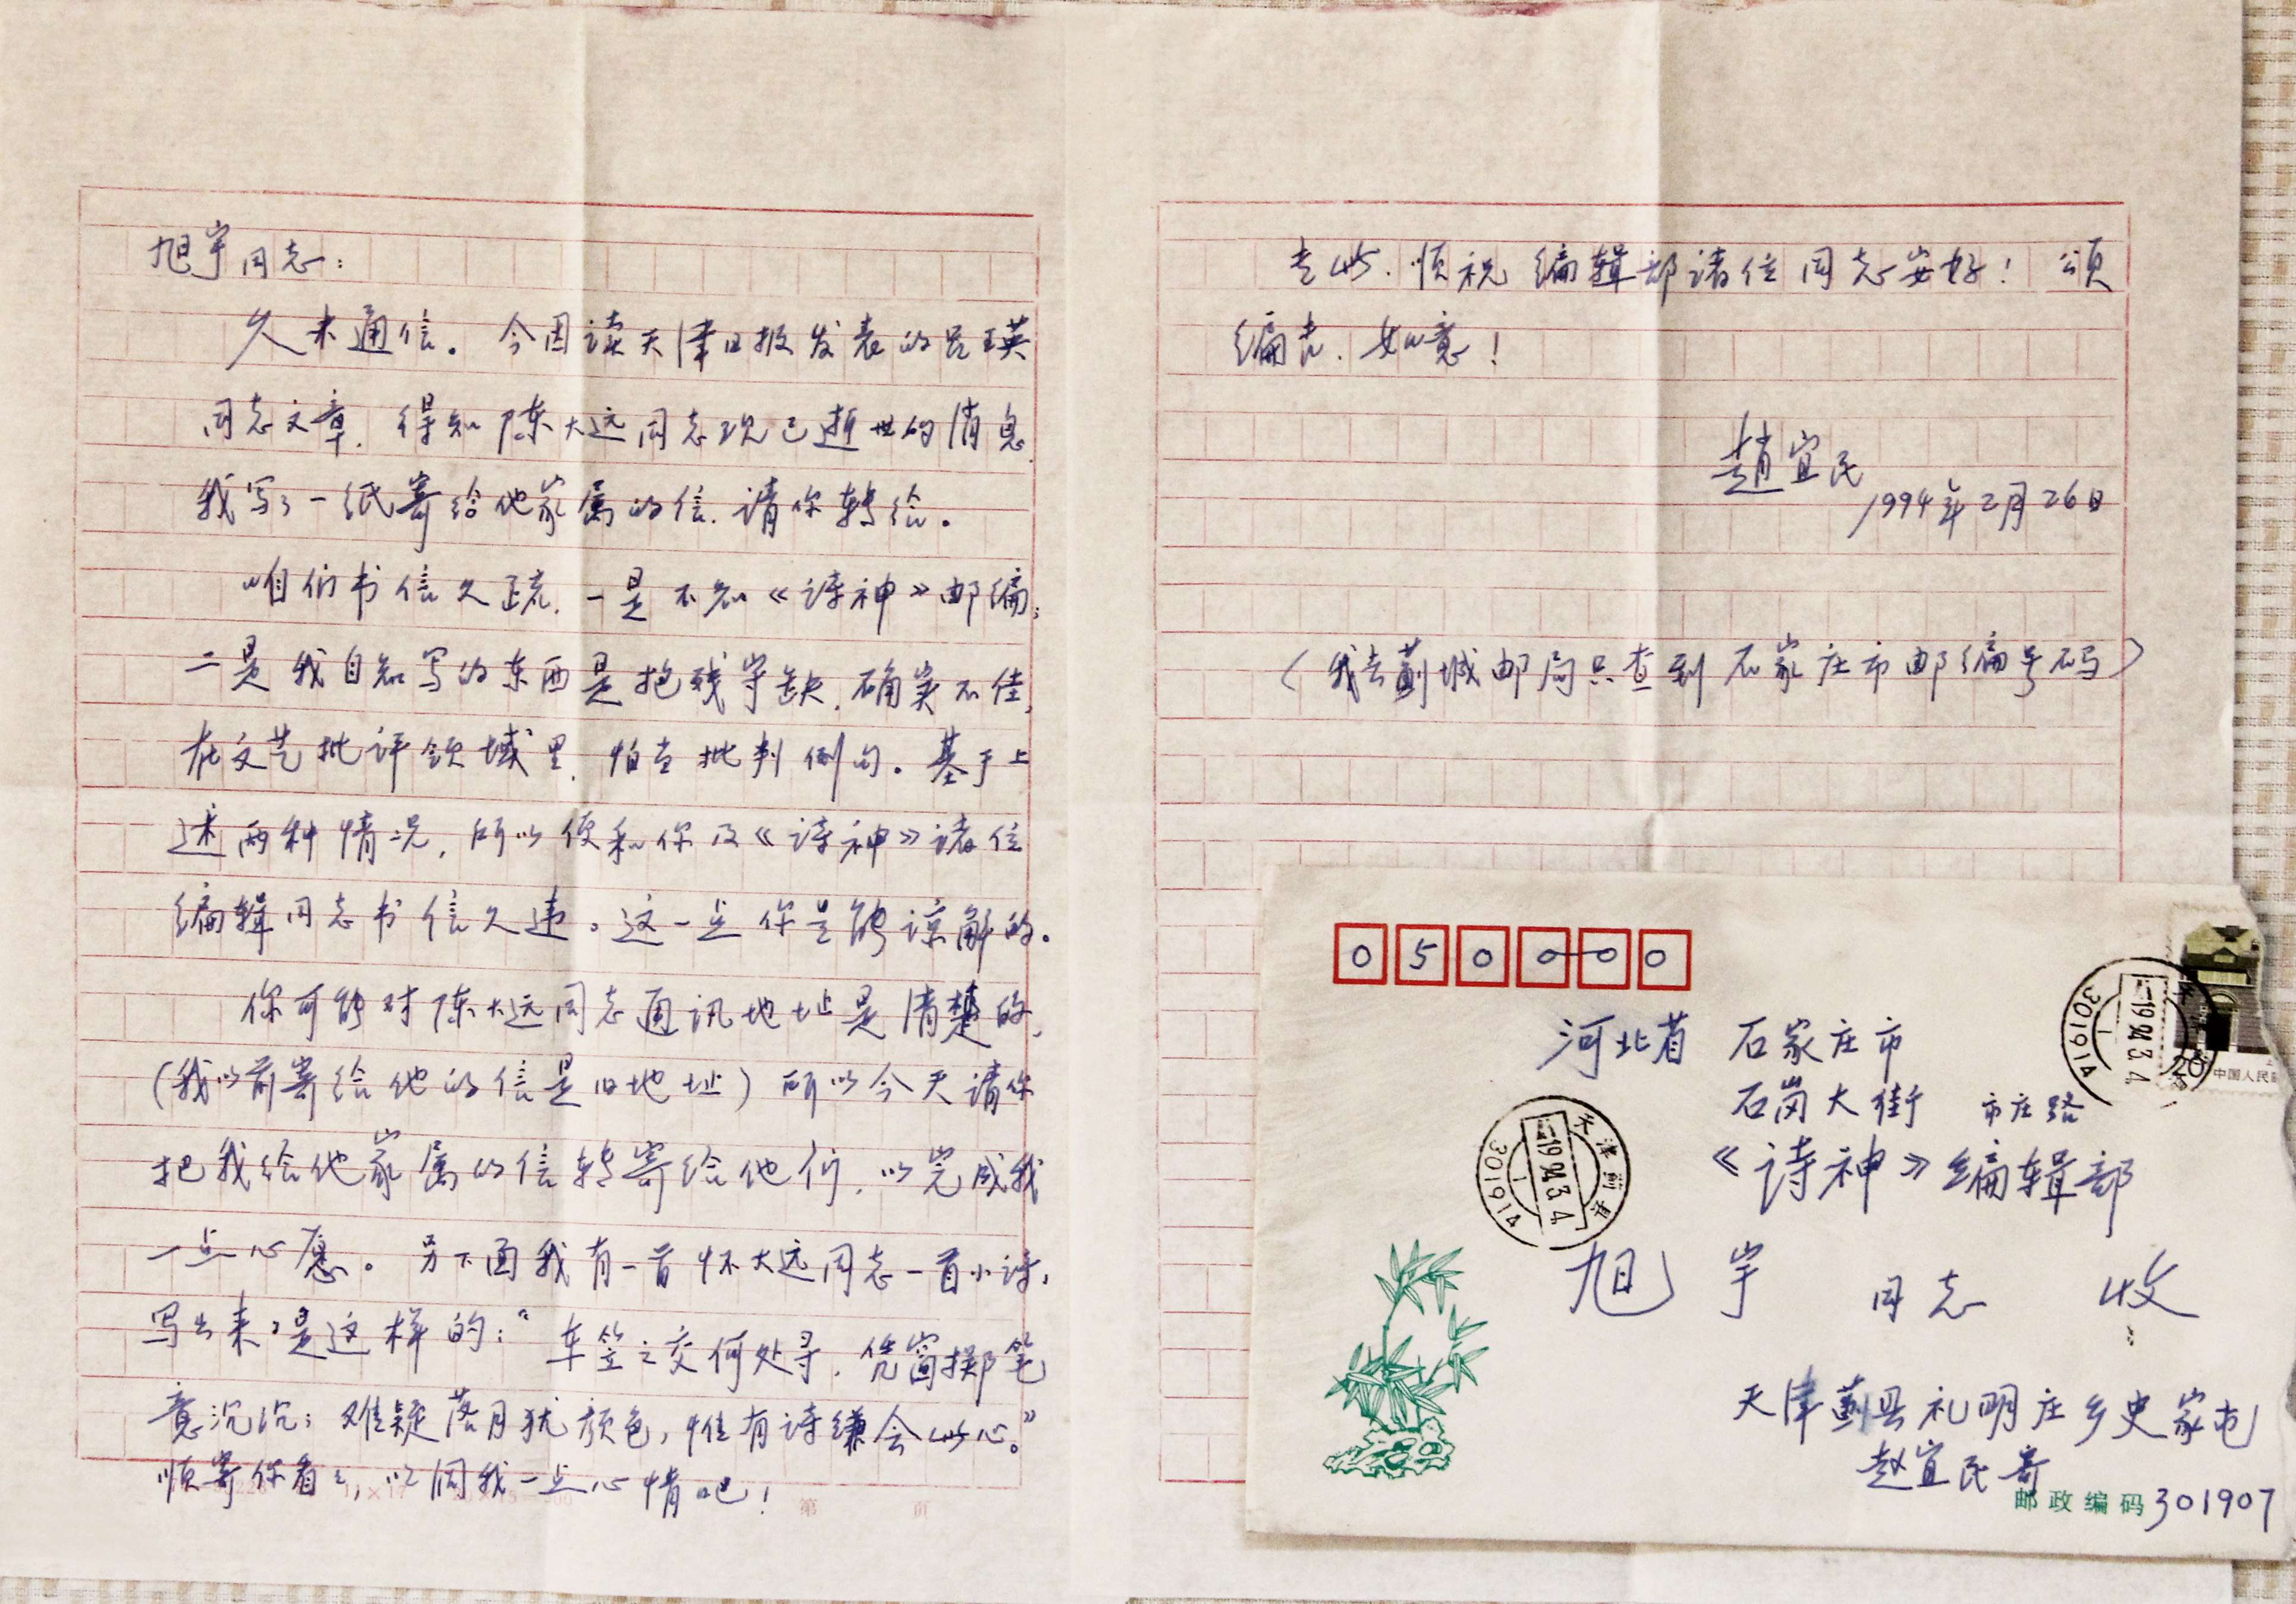 旭宇同志：
久未通信。今因读天津日报发表的吕瑛
同志文章，得知陈大远同志现已逝世的消息
我写了一纸寄给他家属的信，请你转给。
咱们书信久疏，一是不知《诗神》邮编；
二是我自知写的东西是抱残守缺，确实不佳，
在文艺批评领域里，怕在批判例内。基于上
述两种情况，所以便和你及《诗神》诸位
编辑同志书信久违。这一点你是能谅解的。
你可能对陈大远同志通讯地址是清楚的，
（我以前寄给他的信是旧地址）所以今天请你
把我给他家属的信转寄给他们，以完成我
一点心愿。另下面我有一首怀大远同志一首小诗，
写出来，是这样的：“车笠之交何处寻，凭窗掷笔
意沉沉；难疑落月犹颜色，惟有诗缣会此心。”
顺寄你看看，以同我一点心情吧！
第 页
专此，顺祝编辑部诸位同志安好！颂
编吉，如意！
赵宜民
1994年2月26日
（我去蓟城邮局只查到石家庄市邮编号码）
050000
河北省 石家庄市
石岗大街 市庄路
《诗神》编辑部
旭宇 同志 收
天津蓟县礼明庄乡史家屯
赵宜民寄
邮政编码301907
天津蓟县
1994.3.4
301914
1994.3.4
301914
20
中国人民邮